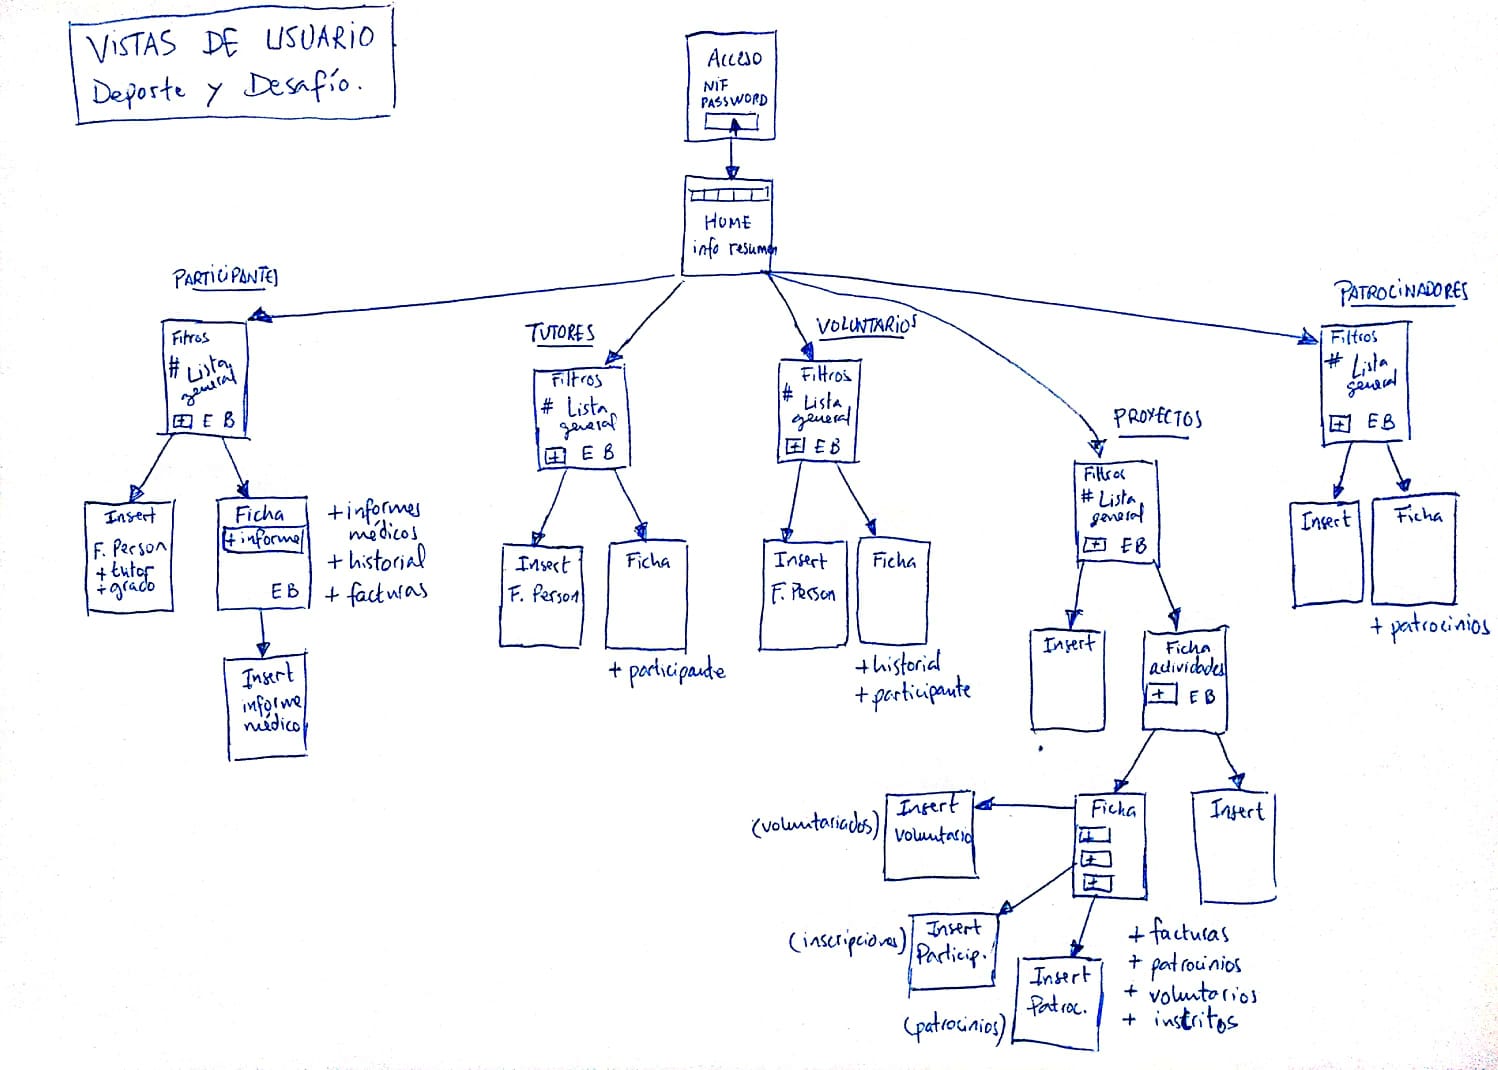 VISTAS DE USUARIO
Deporte y Desafío.
Acceso
NIF
PASSWORD
HOME
info resumen
PARTICIPANTES
Fitros
# Lista
general
+ E B
Insert
F. Person
+ tutor
+ grado
Ficha
+ informe
E B
+ informes
médicos
+ historial
+ facturas
Insert
informe
médico
TUTORES
Filtros
# Lista
general
+ E B
Insert
F. Person
Ficha
+ participante
VOLUNTARIOS
Filtros
# Lista
general
+ E B
Insert
F. Person
Ficha
+ historial
+ participante
PROYECTOS
Filtros
# Lista
general
+ E B
Insert
Ficha
actividades
+ E B
Ficha
+
+
+
Insert
(voluntariados)
Insert
Voluntario
(inscripciones)
Insert
Particip.
(patrocinios)
Insert
Patroc.
+ facturas
+ patrocinios
+ voluntarios
+ instritos
PATROCINADORES
Filtros
# Lista
general
+ E B
Insert
Ficha
+ patrocinios